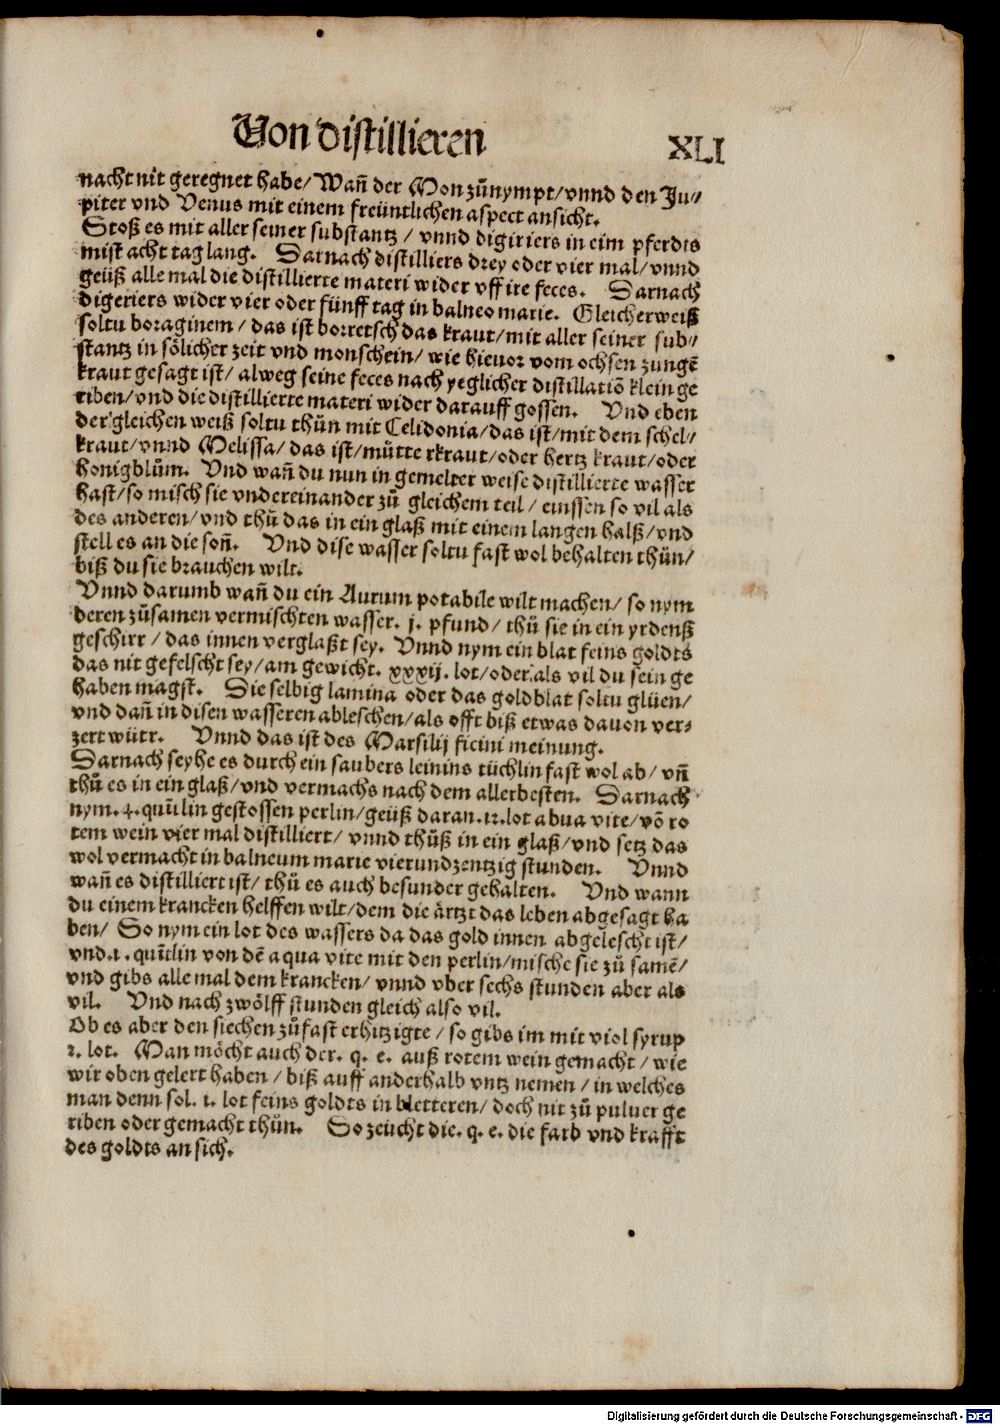 Von distillieren
XLI
nacht nit geregnet habe/ Wañ der Mon zůnympt/ vnnd den Ju⸗
piter vnd Venus mit einem freüntlichen aspect ansicht.
Stoß es mit aller seiner substantz / vnnd digiriers in eim pferdts
mist acht tag lang. Darnach distilliers drey oder vier mal/ vnnd
geüß alle mal die distillierte materi wider vff ire feces. Darnach
digeriers wider vier oder fünff tag in balneo marie. Gleicherweiß
soltu boraginem / das ist borretsch das kraut/ mit aller seiner sub⸗
stantz in sölicher zeit vnd monschein/ wie hieuor vom ochsen zungē
kraut gesagt ist/ alweg seine feces nach yeglicher distillatiō klein ge
riben/ vnd die distillierte materi wider darauff gossen. Vnd eben
der gleichen weiß soltu thůn mit Celidonia/ das ist/ mit dem schel/
kraut/ vnnd Melissa/ das ist/ můtte rkraut/ oder hertz kraut/ oder
honigblům. Vnd wañ du nun in gemelter weise distillierte wasser
hast/ so misch sie vndereinander zů gleichem teil / einssen so vil als
des anderen/ vnd thů das in ein glaß mit einem langen halß/ vnd
stell es an die soñ. Vnd dise wasser soltu fast wol behalten thůn/
biß du sie brauchen wilt.
Vnnd darumb wañ du ein Aurum potabile wilt machen/ so nym
deren zůsamen vermischten wasser. j. pfund/ thů sie in ein yrdenß
geschirr / das innen verglaßt sey. Vnnd nym ein blat feins goldts
das nit gefelscht sey/ am gewicht. xxxij. lot/ oder als vil du sein ge
haben magst. Die selbig lamina oder das goldblat soltu glüen/
vnd dañ in disen wasseren ableschen/ als offt biß etwas dauon ver⸗
zert würt. Vnnd das ist des Marsilij ficini meinung.
Darnach seyhe es durch ein saubers leinins tüchlin fast wol ab/ vñ
thů es in ein glaß/ vnd vermachs nach dem allerbesten. Darnach
nym. 4. quītlin gestossen perlin/ geüß daran. 12. lot abua vite/ vō ro
tem wein vier mal distilliert/ vnnd thůß in ein glaß/ vnd setz das
wol vermacht in balneum marie vierundzentzig stunden. Vnnd
wañ es distilliert ist/ thů es auch besunder gehalten. Vnd wann
du einem krancken helffen wilt/ dem die ärtzt das leben abgesagt ha
ben/ So nym ein lot des wassers da das gold innen abgelescht ist/
vnd. 1. quītlin von dē aqua vite mit den perlin/ mische sie zů samē/
vnd gibs alle mal dem krancken/ vnnd vber sechs stunden aber als
vil. Vnd nach zwölff stunden gleich also vil.
Ob es aber den siechen zůfast erhitzigte / so gibs im mit viol syrup
2. lot. Man möcht auch der. q. e. auß rotem wein gemacht / wie
wir oben gelert haben / biß auff anderhalb vntz nemen / in welches
man denn sol. 1. lot feins goldts in bletteren/ doch nit zů puluer ge
riben oder gemacht thůn. So zeücht die. q. e. die farb vnd krafft
des goldts an sich.
Digitalisierung gefördert durch die Deutsche Forschungsgemeinschaft - DFG